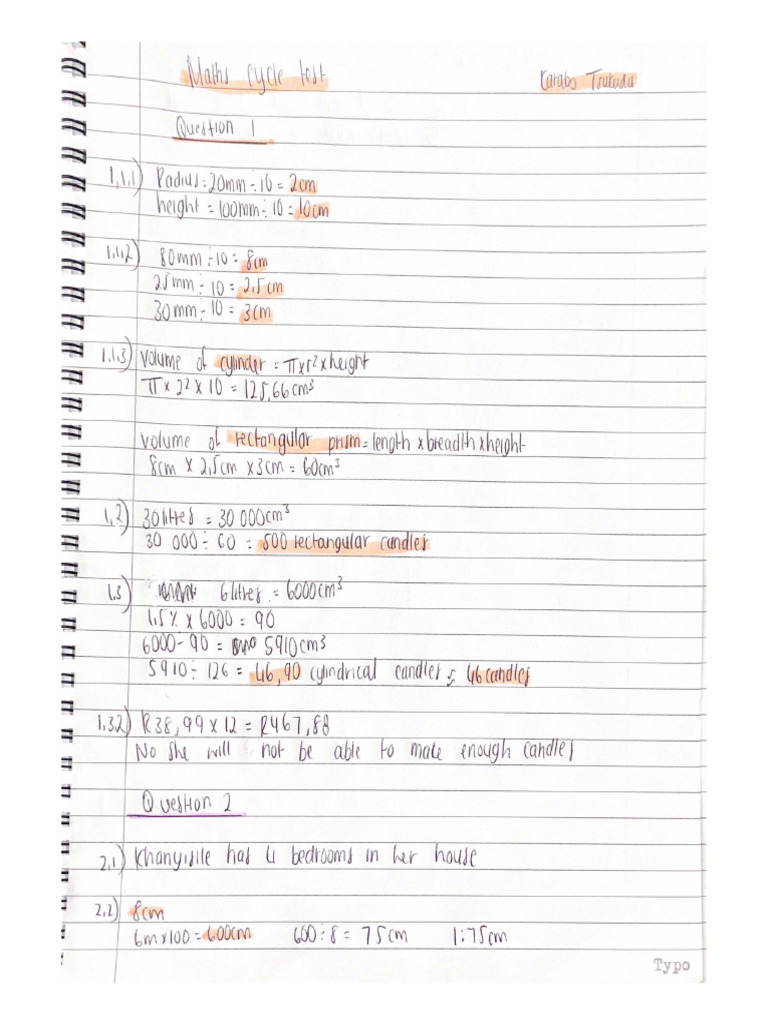 Maths cycle test
Karabo
Question 1
1,1,1) Radius = 20mm ÷ 10 = 2cm
height = 100mm ÷ 10 = 10cm
1.1.2) 80mm ÷ 10 = 8cm
25mm ÷ 10 = 2,5cm
30mm ÷ 10 = 3cm
1.1.3) Volume of cylinder = π x r² x height
π x 2² x 10 = 125,66cm³
Volume of rectangular prism = length x breadth x height
8cm x 2,5cm x 3cm = 60cm³
1,2) 30 litres = 30 000cm³
30 000 ÷ 60 = 500 rectangular candles
1.3) 6 litres = 6000cm³
1,5% x 6000 = 90
6000 - 90 = 5910cm³
5910 ÷ 126 = 46,90 cylindrical candles = 46 candles
1,32) R38,99 x 12 = R467,88
No she will not be able to make enough candles
Question 2
2,1) Khanyisile has 4 bedrooms in her house
2,2) 8cm
6m x 100 = 600cm 600 ÷ 8 = 75cm 1:75cm
Typo